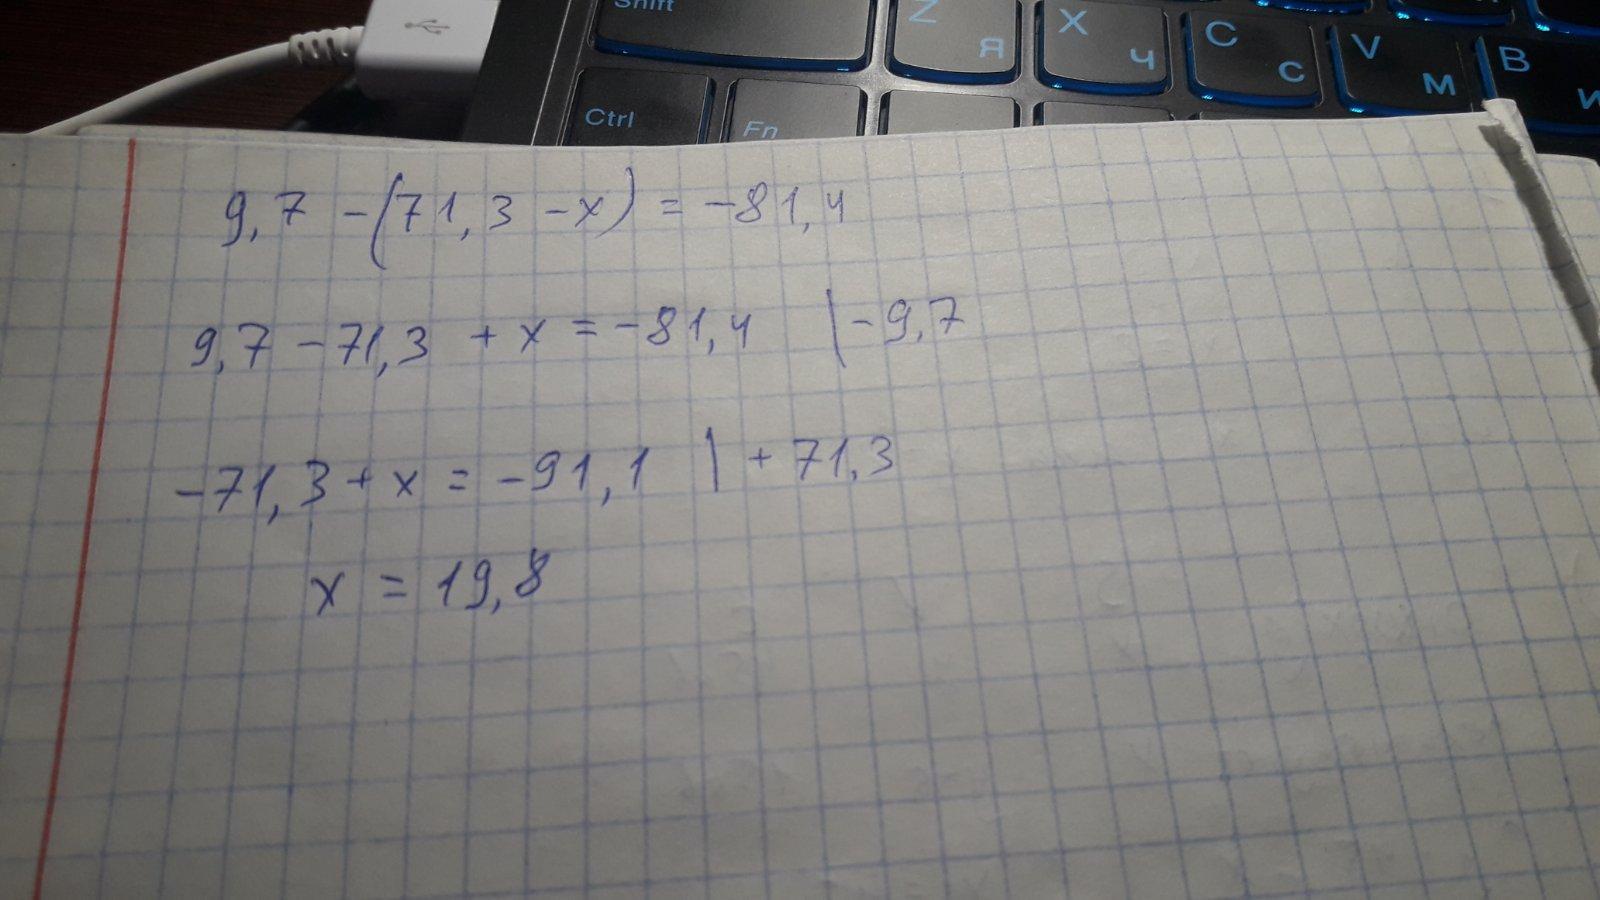 Shift
Z Я
X Ч
C С
V М
B И
Ctrl
Fn
9,7 - (71,3 - x) = -81,4
9,7 - 71,3 + x = -81,4 | -9,7
-71,3 + x = -91,1 | + 71,3
x = 19,8